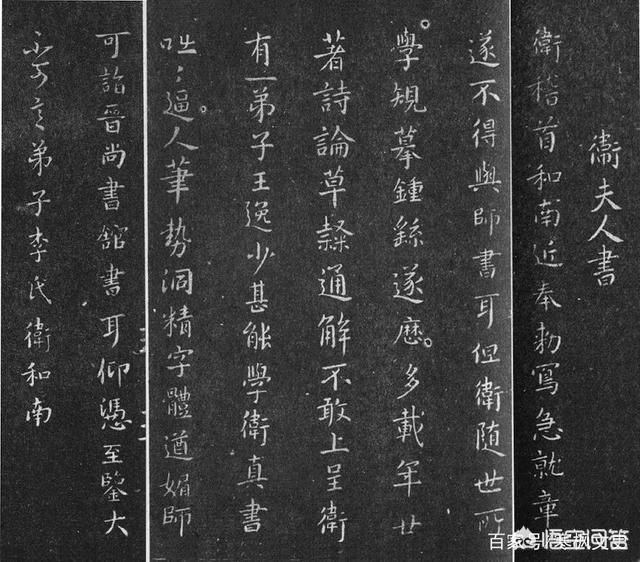 衛夫人書
衛稽首和南近奉勑寫急就章
遂不得與師書耳但衛隨世所
學規摹鍾繇遂歷多載年廿
著詩論草隸通解不敢上呈衛
有一弟子王逸少甚能學衛真書
咄〻逼人筆勢洞精字體遒媚師
可詣晉尚書舘書耳仰憑至鑒大
不可言弟子李氏衛和南
悟空问答
百家号/